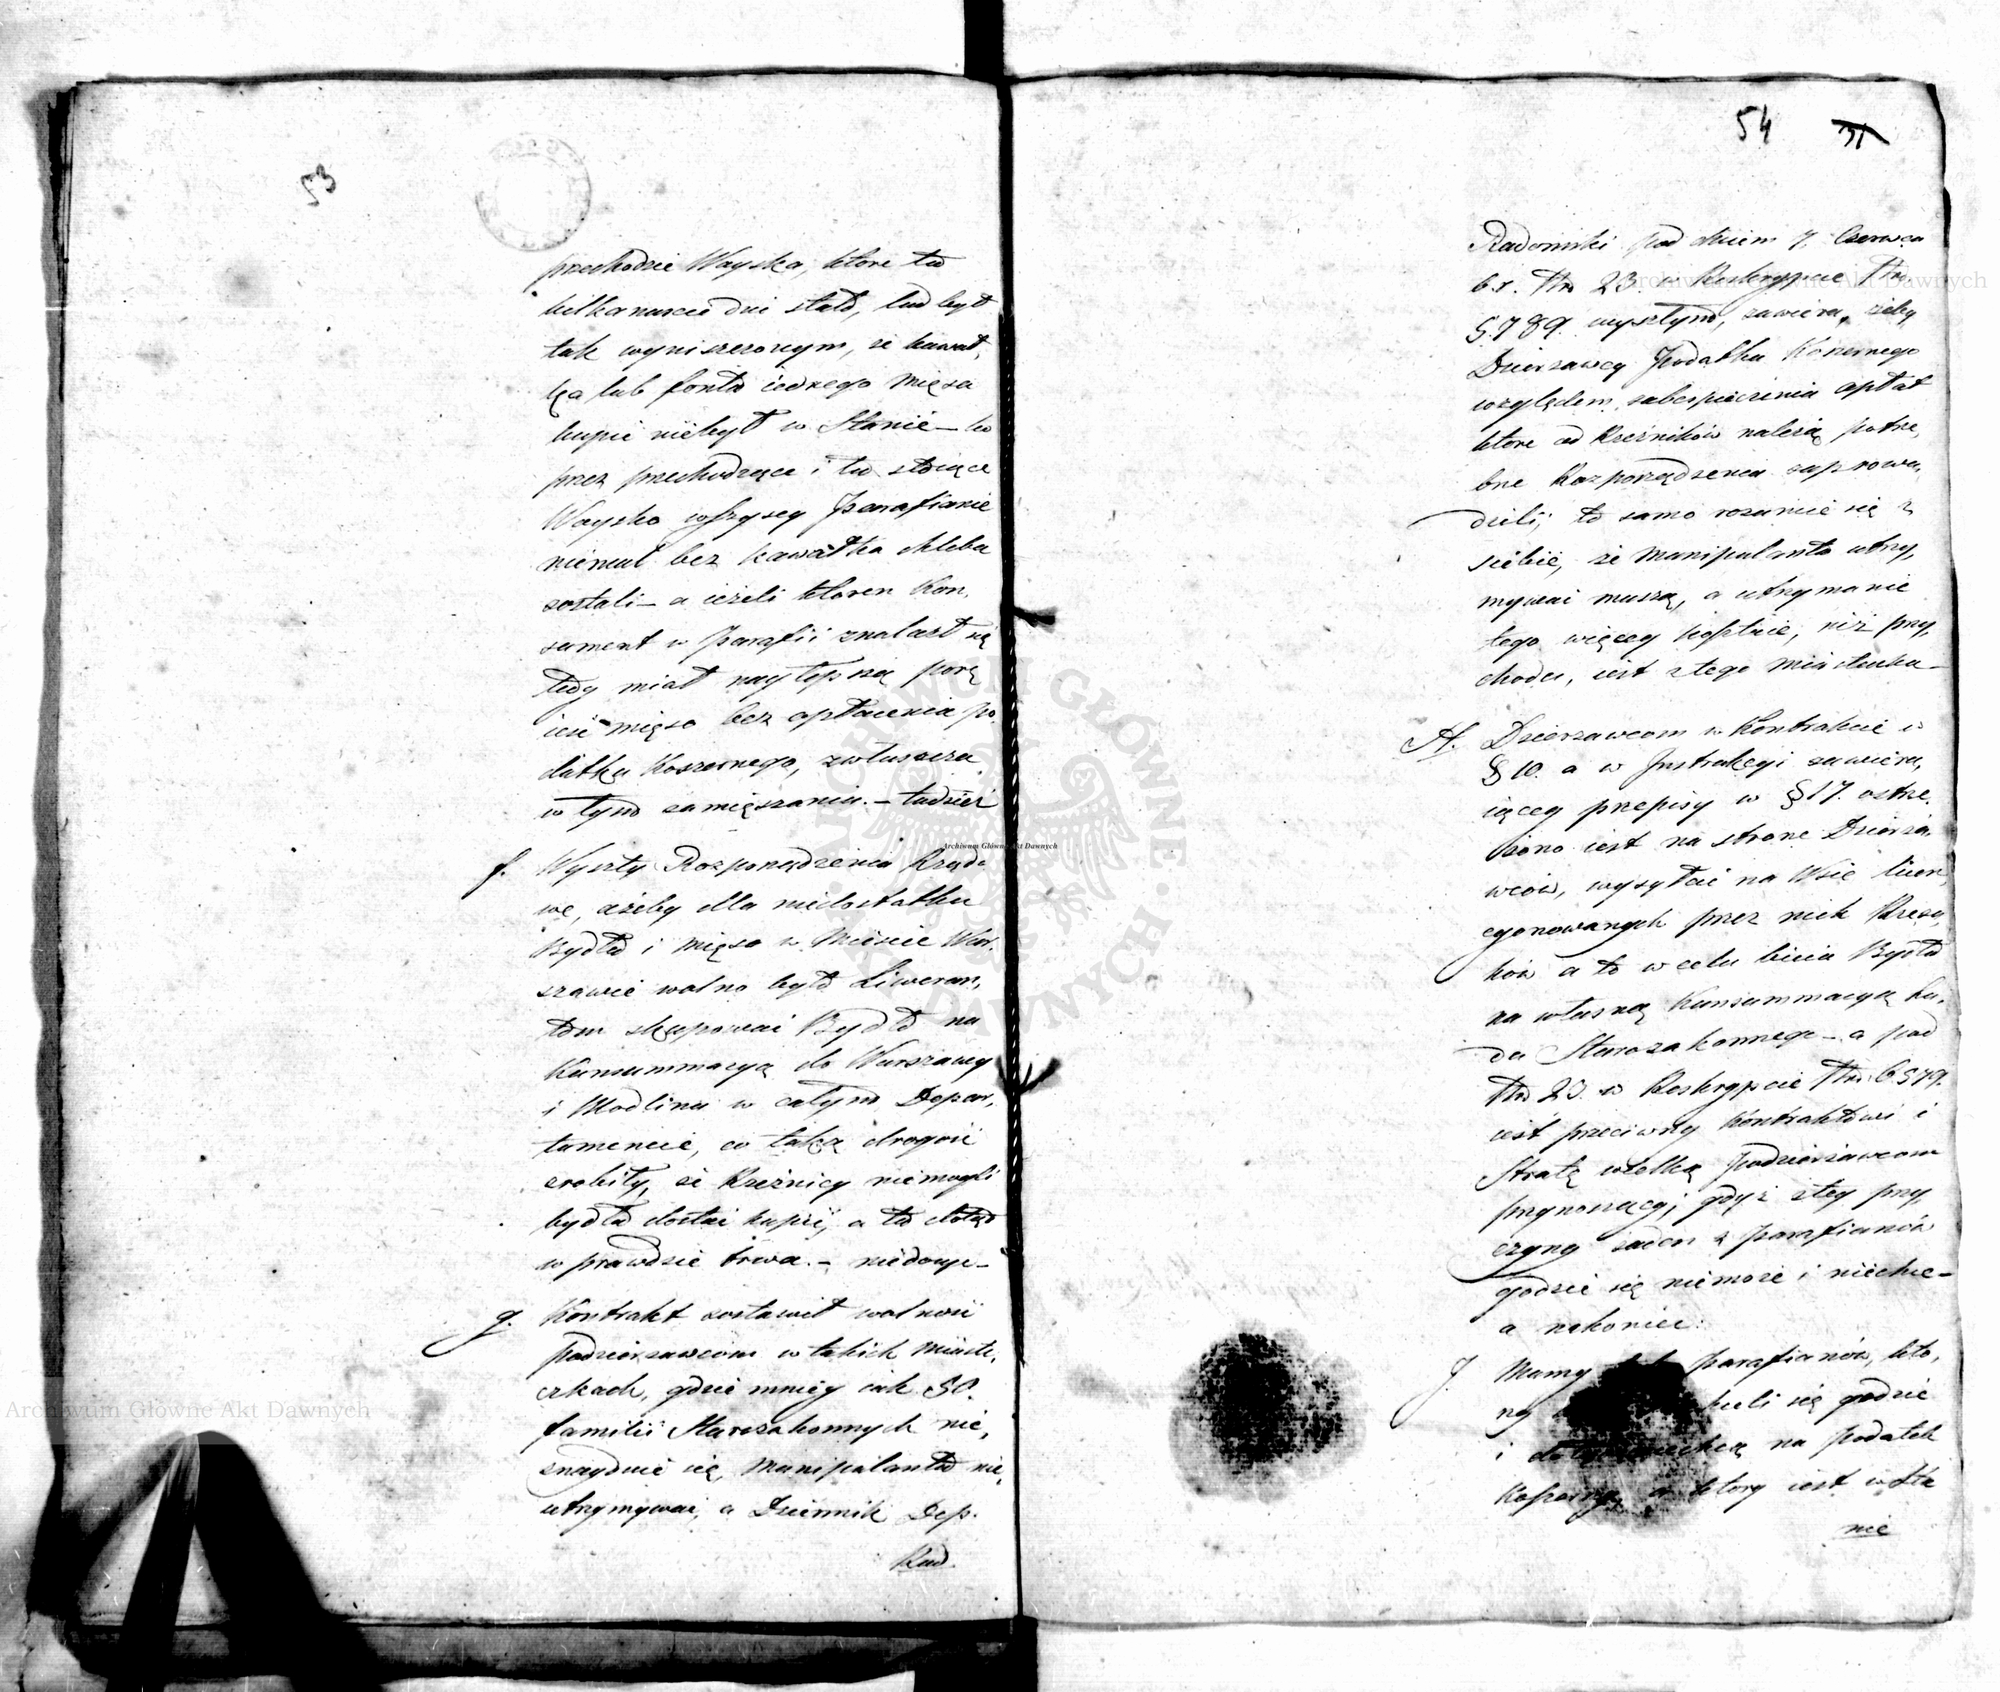 53
przechodzie Woyska, ktore tu
kilkanascie dni stało, lud był
tak wyniszczonym, że kawał,
ka lub fonta iednego Mięsa
kupić niebył w Stanie – bo
przez przechodzące i tu stoiące
Woysko wszyscy Parafianie
niemal bez kawałka chleba
zostali – a ieżeli ktoren Kon,
sument w Parafii znalazł się
tedy miał naylepszą porę
ieść mięso bez opłacenia po
datku Koszernego, zwłaszcza
w tym zamięszaniu. – tudzież
f. Wyszły Rozporządzenia Rządo
we, ażeby dla niedostatku
Bydła i Mięsa w Mieście War,
szawie wolno było Liweran,
tom skupować Bydło na
Kunsummacyą do Warszawy
i Modlina w całym Depar,
tamencie, co taką drogość
zrobiły, że Rzeźnicy niemogli
bydła dostać kupić, a to dotąd
w prawdzie trwa. –
g. Kontrakt zostawił wolność
podzierzawcom w takich Miaste,
czkach, gdzie mniey iak 50.
familii Starozakonnych nie,
znayduie się, Manipulanta nie,
utrzymywać, a Dziennik Dep.
Rad.
54
31
Radomski pod dniem 7. Czerwca
b.r. Nro 23. w Reskrypcie Nro
5789. wyszłym, zawiera, żeby
Dzierzawcy Podatku Koszernego
względem zabespieczenia opłat
ktore od Rzeźników należą, potrze,
bne Rozporządzenia zaprowa,
dzili; to samo rozumie się z
siebie, że Manipulanta utrzy,
mywać muszą, a utrzymanie
tego więcey kosztuie, niż przy,
chodu, iest z tego Miasteczka –
H. Dzierzawcom w Kontrakcie w
§ 10. a w Instrukcyi zawiera,
iącey przepisy w § 17. ostrze,
żono iest na stronę Dzierża,
wców, wysyłać na Wsie licen,
cyonowanych przez nich Rzeza,
ków a to w celu bicia Bydła
na własną Kunsummacyą Lu,
du Starozakonnego – a pod
Nro 23. w Reskrypcie Nro 6579.
iest przeciwny Kontraktowi i
Stratę wielką Podzierżawcom
przynoszący; gdyż z tey przy,
czyny żaden z parafianów
godzić się niemoże i niechce –
a nakoniec:
J. Mamy parafianów, któ,
rzy się godzić
i niechcą na podatek
Koszerny, a ktory iest w Sta
nie